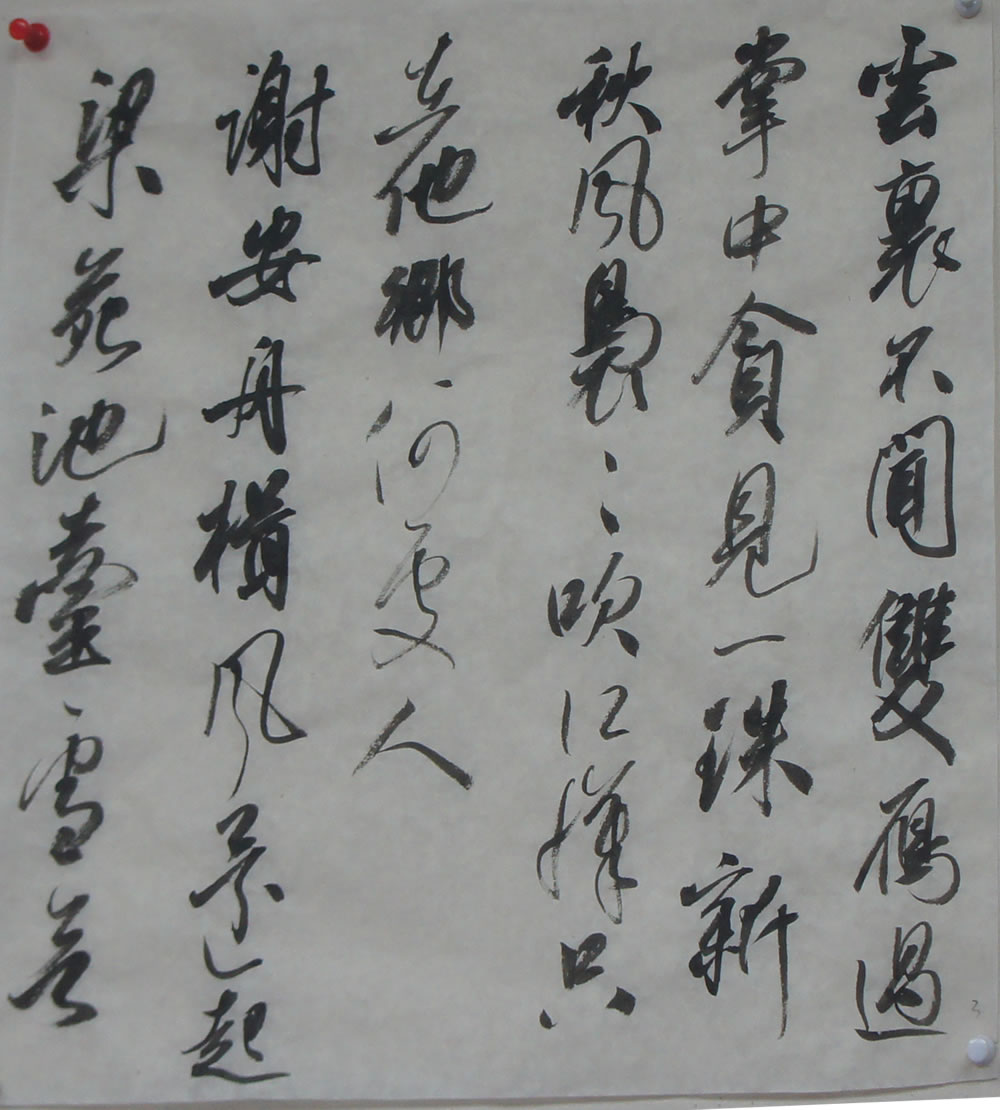 雲裏不聞雙鴈過
掌中貪見一珠新
秋風裊々吹江漢只
在他鄉何處人
謝安舟楫風還起
梁苑池臺雪